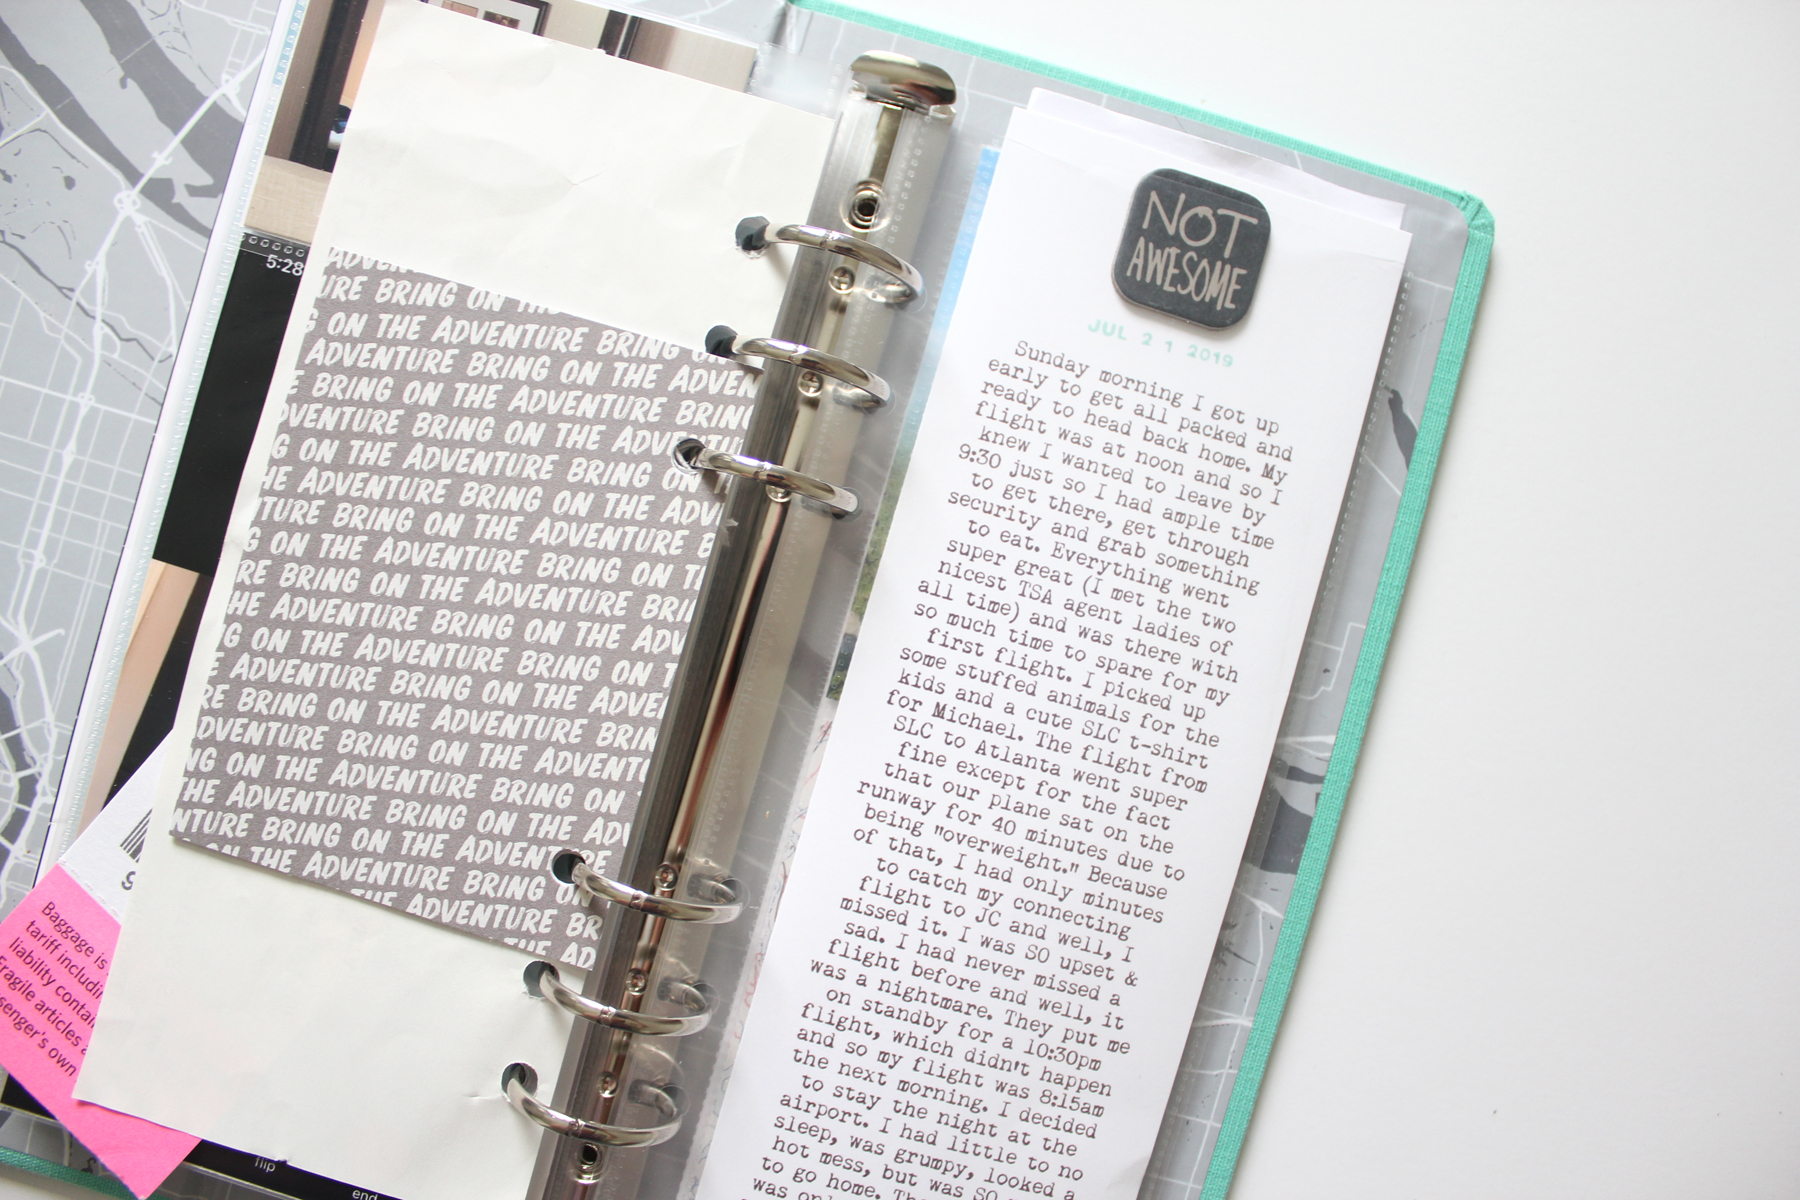 5:28
ADVEN
URE BRING ON THE
G ON THE ADVENTURE BRING ON
ADVENTURE BRING ON THE ADVEN
E BRING ON THE ADVENTURE BRING
DVENTURE BRING ON THE ADVENTU
G ON THE ADVENTURE BRING ON
HE ADVENTURE BRING ON THE ADV
TURE BRING ON THE ADVENTURE B
G ON THE ADVENTURE BRING ON T
RE BRING ON THE ADVENTURE BRI
HE ADVENTURE BRING ON THE ADV
G ON THE ADVENTURE BRING ON T
E ADVENTURE BRING ON THE ADVE
RE BRING ON THE ADVENTURE BRIN
DVENTURE BRING ON THE ADVENTU
NG ON THE ADVENTURE BRING ON
THE ADVENTURE BRING ON THE ADV
NTURE BRING ON THE ADVENTURE
ON THE ADVENTURE BRING ON
THE ADVENTURE BR
THE AD
9
Baggage is
tariff includin
liability contai
Fragile articles a
senger's own
flip
end
NOT
AWESOME
JUL 21 2019
Sunday morning I got up
early to get all packed and
ready to head back home. My
flight was at noon and so I
knew I wanted to leave by
9:30 just so I had ample time
to get there, get through
security and grab something
to eat. Everything went
super great (I met the two
nicest TSA agent ladies of
all time) and was there with
so much time to spare for my
first flight. I picked up
some stuffed animals for the
kids and a cute SLC t-shirt
for Michael. The flight from
SLC to Atlanta went super
fine except for the fact
that our plane sat on the
runway for 40 minutes due to
being "overweight." Because
of that, I had only minutes
to catch my connecting
flight to JC and well, I
missed it. I was SO upset &
sad. I had never missed a
flight before and well, it
was a nightmare. They put me
on standby for a 10:30pm
flight, which didn't happen
and so my flight was 8:15am
the next morning. I decided
to stay the night at the
airport. I had little to no
sleep, was grumpy, looked a
hot mess, but was SO
to go home.
was